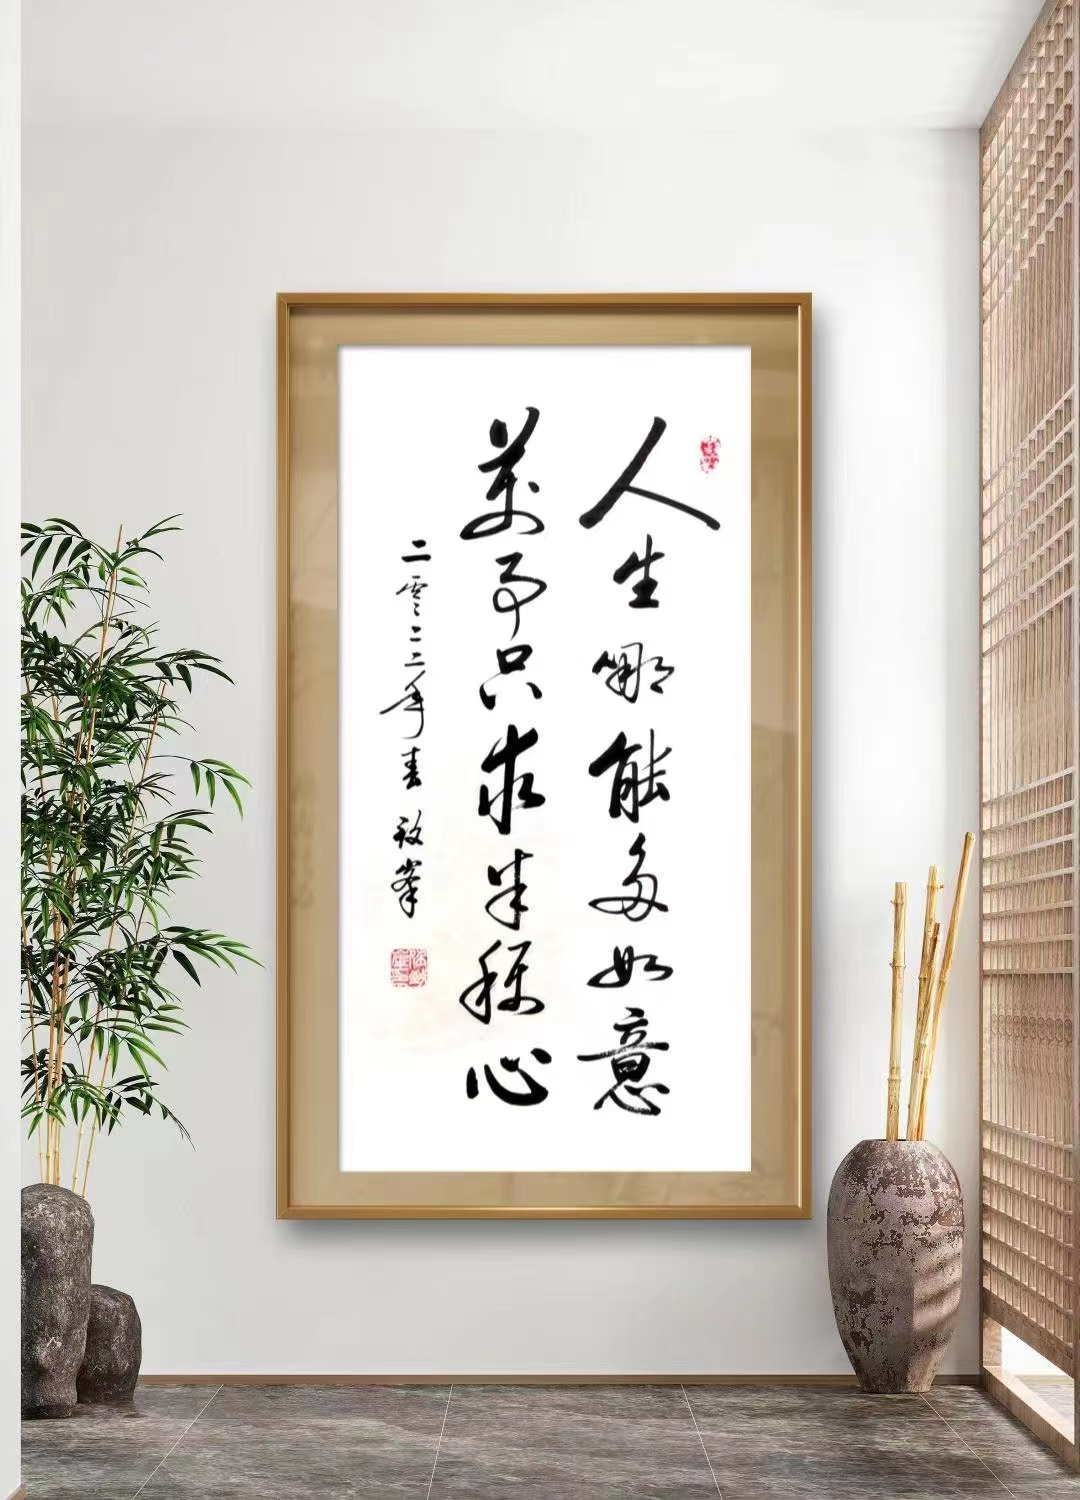 人生哪能多如意
萬事只求半称心
二零二二年春 孜峯